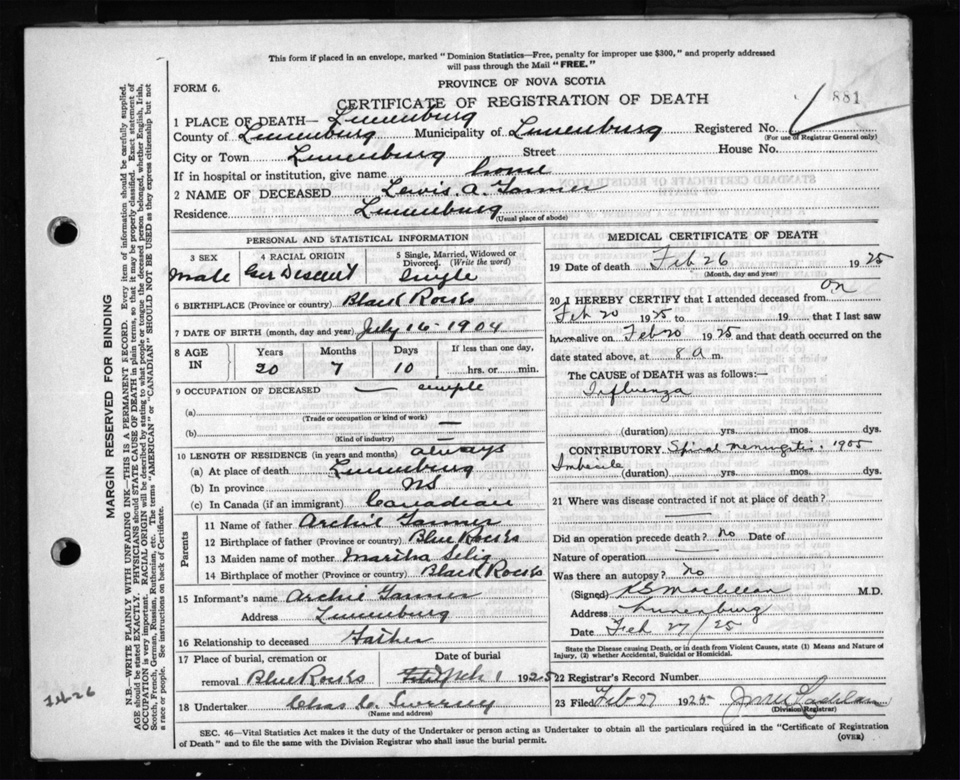 This form if placed in an envelope, marked "Dominion Statistics—Free, penalty for improper use $300," and properly addressed
will pass through the Mail "FREE."
FORM 6.
PROVINCE OF NOVA SCOTIA
CERTIFICATE OF REGISTRATION OF DEATH
881
1 PLACE OF DEATH— Lunenburg
County of Lunenburg Municipality of Lunenburg Registered No.
(For use of Registrar General only)
City or Town Lunenburg Street House No.
If in hospital or institution, give name home
2 NAME OF DECEASED Lewis A. Tanner
Residence Lunenburg
(Usual place of abode)
PERSONAL AND STATISTICAL INFORMATION
3 SEX Male
4 RACIAL ORIGIN Ger Descent
5 Single, Married, Widowed or Divorced. (Write the word) Single
6 BIRTHPLACE (Province or country) Black Rocks
7 DATE OF BIRTH (month, day and year) July 16-1904
8 AGE IN Years Months Days If less than one day,
20 7 10 hrs. or min.
9 OCCUPATION OF DECEASED — simple
(a) —
(Trade or occupation or kind of work)
(b) —
(Kind of industry)
10 LENGTH OF RESIDENCE (in years and months) always
(a) At place of death Lunenburg
(b) In province NS
(c) In Canada (if an immigrant) Canadian
Parents
11 Name of father Archie Tanner
12 Birthplace of father (Province or country) Blue Rocks
13 Maiden name of mother Martha Selig
14 Birthplace of mother (Province or country) Black Rocks
15 Informant's name Archie Tanner
Address Lunenburg
16 Relationship to deceased Father
17 Place of burial, cremation or Date of burial
removal Blue Rocks Mch 1 1925
18 Undertaker Chas C.
(Name and address)
MEDICAL CERTIFICATE OF DEATH
19 Date of death Feb 26 1925
(Month, day and year)
20 I HEREBY CERTIFY that I attended deceased from on
Feb 20 1925 to 19 that I last saw
him alive on Feb 20 1925 and that death occurred on the
date stated above, at 8 a m.
The CAUSE of DEATH was as follows:—
Influenza
(duration) yrs. mos. dys.
CONTRIBUTORY Spinal Meningitis. 1905
Imbecile
(duration) yrs. mos. dys.
21 Where was disease contracted if not at place of death?
—
Did an operation precede death? No Date of
Nature of operation —
Was there an autopsy? No
(Signed) M.D.
Address Lunenburg
Date Feb 27/25
State the Disease causing Death, or in death from Violent Causes, state (1) Means and Nature of
Injury, (2) whether Accidental, Suicidal or Homicidal.
22 Registrar's Record Number
23 Filed Feb 27 1925
(Division Registrar)
SEC. 46—Vital Statistics Act makes it the duty of the Undertaker or person acting as Undertaker to obtain all the particulars required in the "Certificate of Registration
of Death" and to file the same with the Division Registrar who shall issue the burial permit.
(OVER)
MARGIN RESERVED FOR BINDING
N.B.—WRITE PLAINLY WITH UNFADING INK—THIS IS A PERMANENT RECORD. Every item of information should be carefully supplied.
AGE should be stated EXACTLY. PHYSICIANS should STATE CAUSE OF DEATH in plain terms, so that it may be properly classified. Exact statement of
OCCUPATION is very important. RACIAL ORIGIN will be described by stating to what people or tongue the deceased person belonged, whether English, Irish,
Scotch, French, German, Russian, Ruthenian, etc. The terms "AMERICAN" or "CANADIAN" SHOULD NOT BE USED as they express citizenship but not
a race or people. See instructions on back of Certificate.